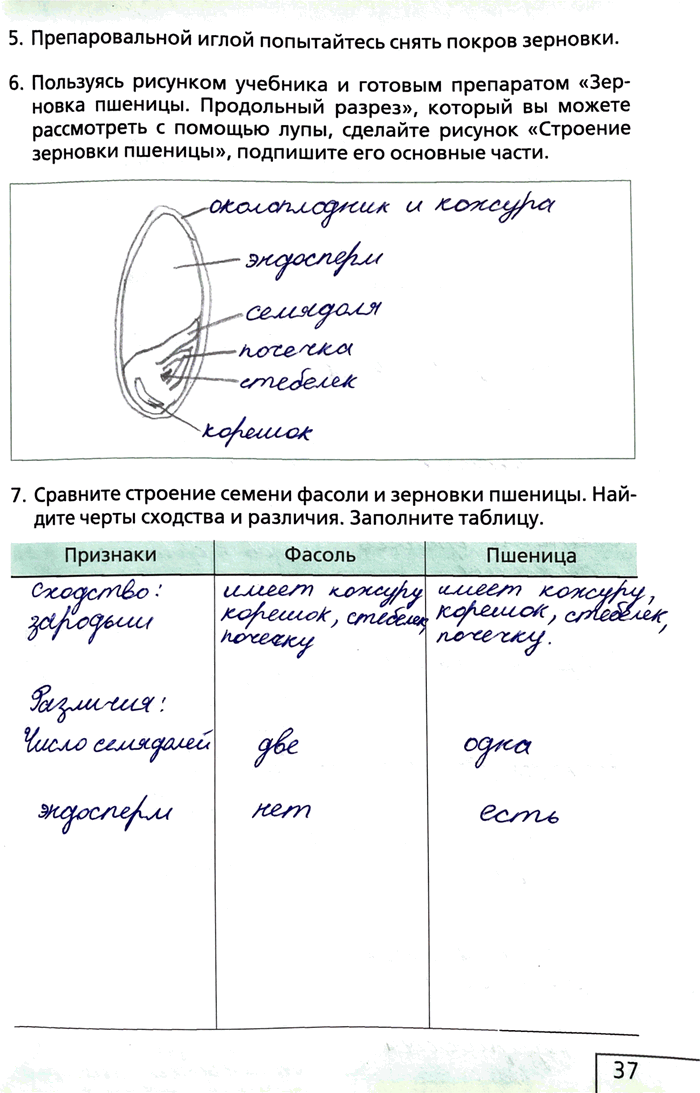 5. Препаровальной иглой попытайтесь снять покров зерновки.
6. Пользуясь рисунком учебника и готовым препаратом «Зер-
новка пшеницы. Продольный разрез», который вы можете
рассмотреть с помощью лупы, сделайте рисунок «Строение
зерновки пшеницы», подпишите его основные части.
околоплодник и кожура
эндосперм
семядоля
почечка
стебелек
корешок
7. Сравните строение семени фасоли и зерновки пшеницы. Най-
дите черты сходства и различия. Заполните таблицу.
Признаки Фасоль Пшеница
Сходство: имеет кожуру имеет кожуру,
зародыш корешок, стебелек, корешок, стебелек,
почечку почечку.
Различия:
Число семядолей две одна
эндосперм нет есть
37